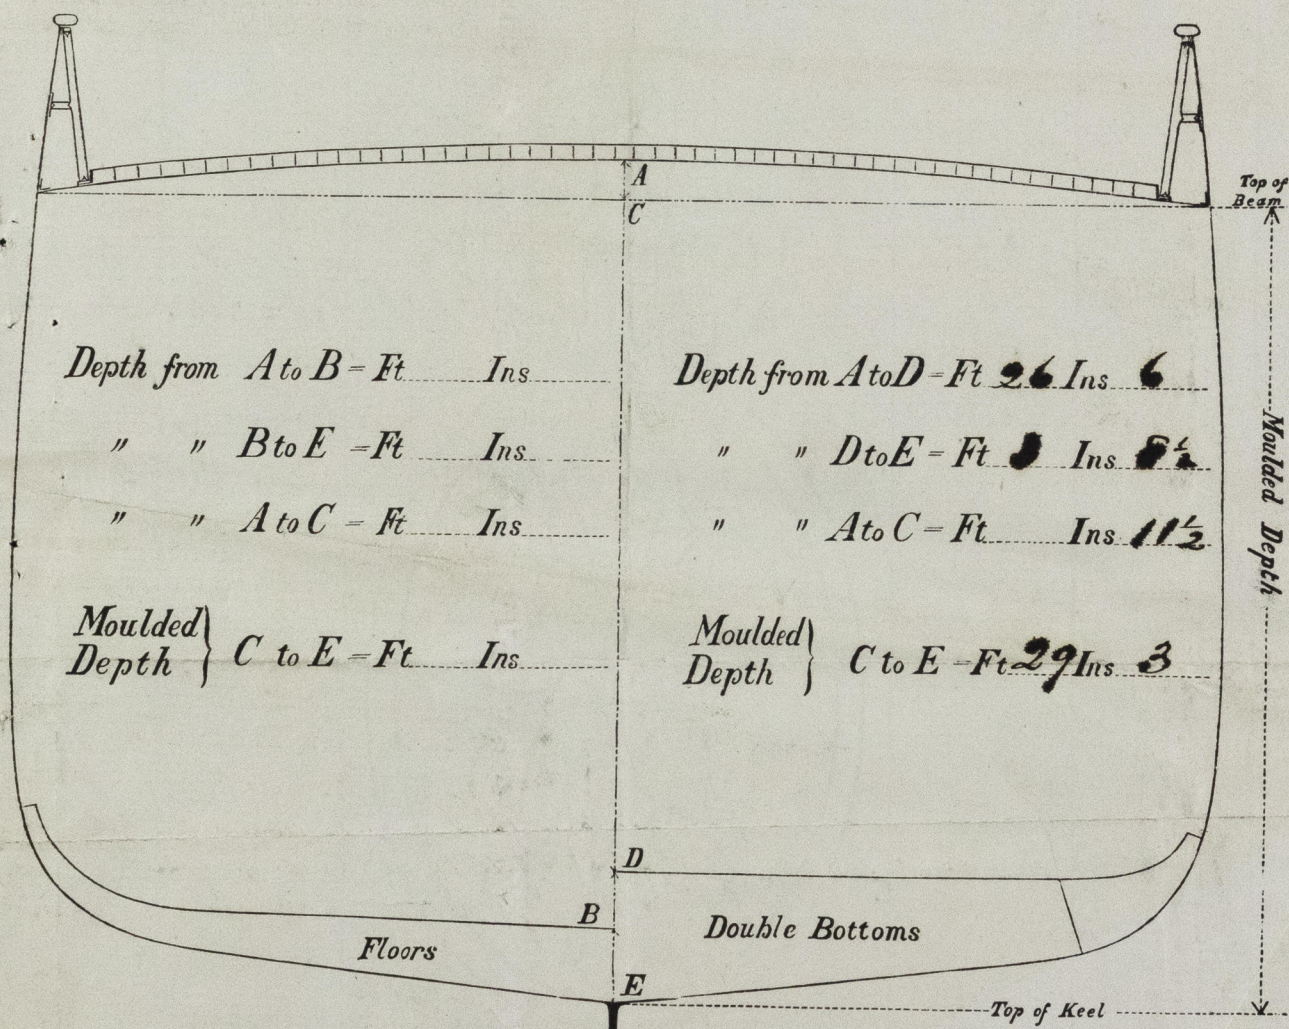 Top of
Beam
A
C
Depth from A to B = Ft Ins
" " B to E = Ft Ins
" " A to C = Ft Ins
Moulded
Depth } C to E = Ft Ins
Depth from A to D = Ft 26 Ins 6
" " D to E = Ft 3 Ins 8½
" " A to C = Ft Ins 11½
Moulded
Depth } C to E = Ft 29 Ins 3
Moulded Depth
D
B
Floors
Double Bottoms
E
Top of Keel